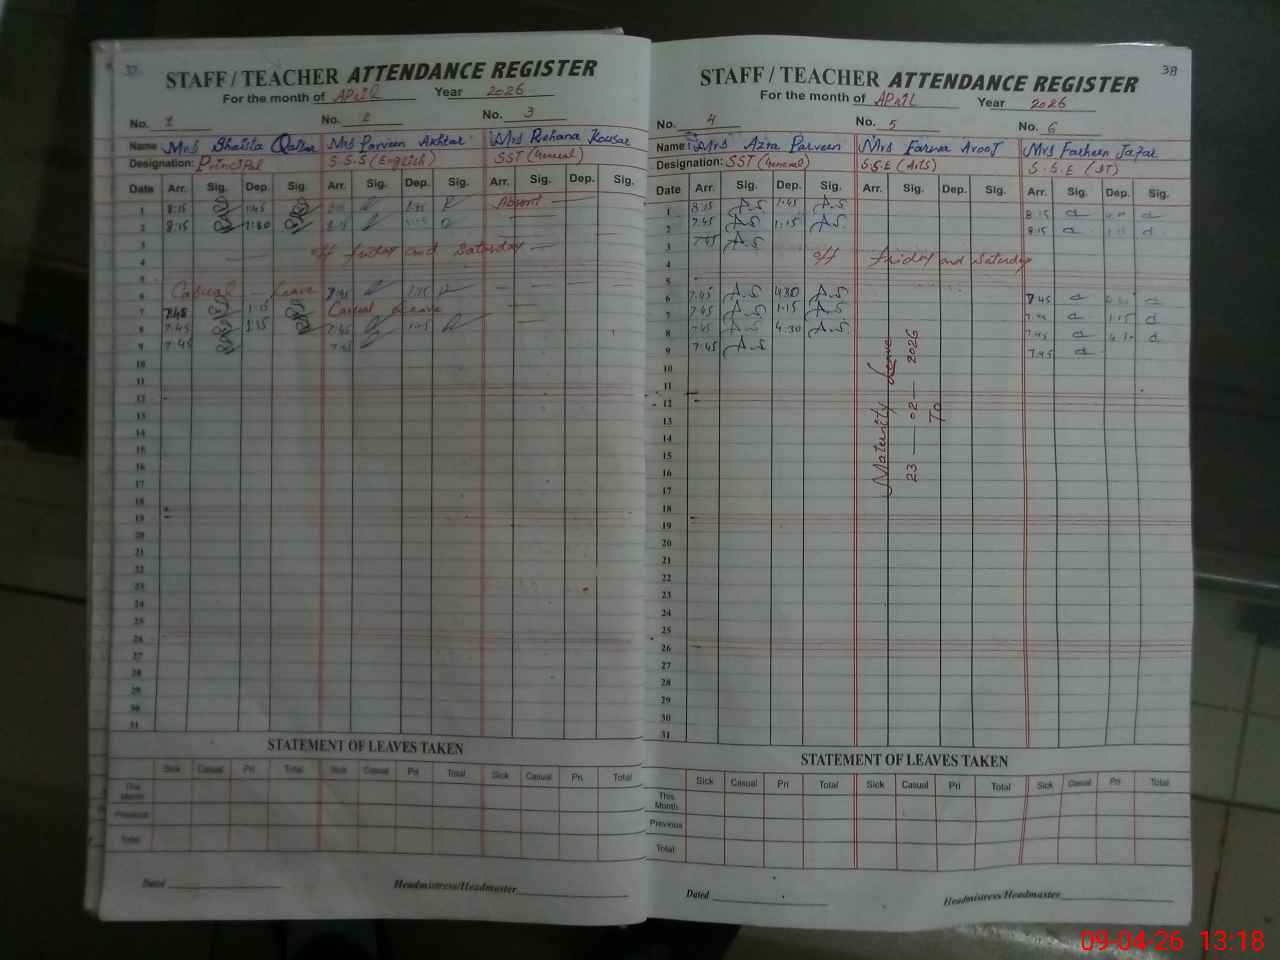 37
STAFF / TEACHER ATTENDANCE REGISTER
For the month of APril Year 2026
No. 1 No. 2 No. 3
Name Mrs Mrs Parveen Akhtar Mrs Rehana Kousar
Designation: Principal S.S.S (English) SST (General)
Date Arr. Sig. Dep. Sig. Arr. Sig. Dep. Sig. Arr. Sig. Dep. Sig.
1 8:15 1:45 Absent
2 8:15 1:30
3 off friday and Saturday
4
5
6 Casual Leave 7:45 1:15
7 7:45 1:15 Casual Leave
8 7:45 1:15 7:45 1:15
9 7:45 7:45
10
11
12
13
14
15
16
17
18
19
20
21
22
23
24
25
26
27
28
29
30
31
STATEMENT OF LEAVES TAKEN
Sick Casual Pri Total Sick Casual Pri Total Sick Casual Pri Total
This Month
Previous
Total
Dated Headmistress/Headmaster
38
STAFF / TEACHER ATTENDANCE REGISTER
For the month of APRIL Year 2026
No. 4 No. 5 No. 6
Name : Mrs Azra Parveen Mrs Farwa Arooj Mrs Farheen Jafar
Designation: SST (General) S.S.E (Arts) S.S.E (IT)
Date Arr. Sig. Dep. Sig. Arr. Sig. Dep. Sig. Arr. Sig. Dep. Sig.
1 8:15 A.S 1:45 A.S 8:15
2 7:45 A.S 1:15 A.S 8:15
3 7:45 A.S
4 off Friday and Saturday
5
6 7.45 A.S 4:30 A.S 7:45
7 7:45 A.S 1:15 A.S 7:45 1:15
8 7:45 A.S 4:30 A.S 7:45 4:30
9 7:45 A.S 7:45
10
11
12
13
14
15
16
17
18
19
20
21
22
23
24
25
26
27
28
29
30
31
Maturnity Leave
23 — 02 — 2026
To
STATEMENT OF LEAVES TAKEN
Sick Casual Pri Total Sick Casual Pri Total Sick Casual Pri Total
This Month
Previous
Total
Dated Headmistress/Headmaster
09-04-26 13:18